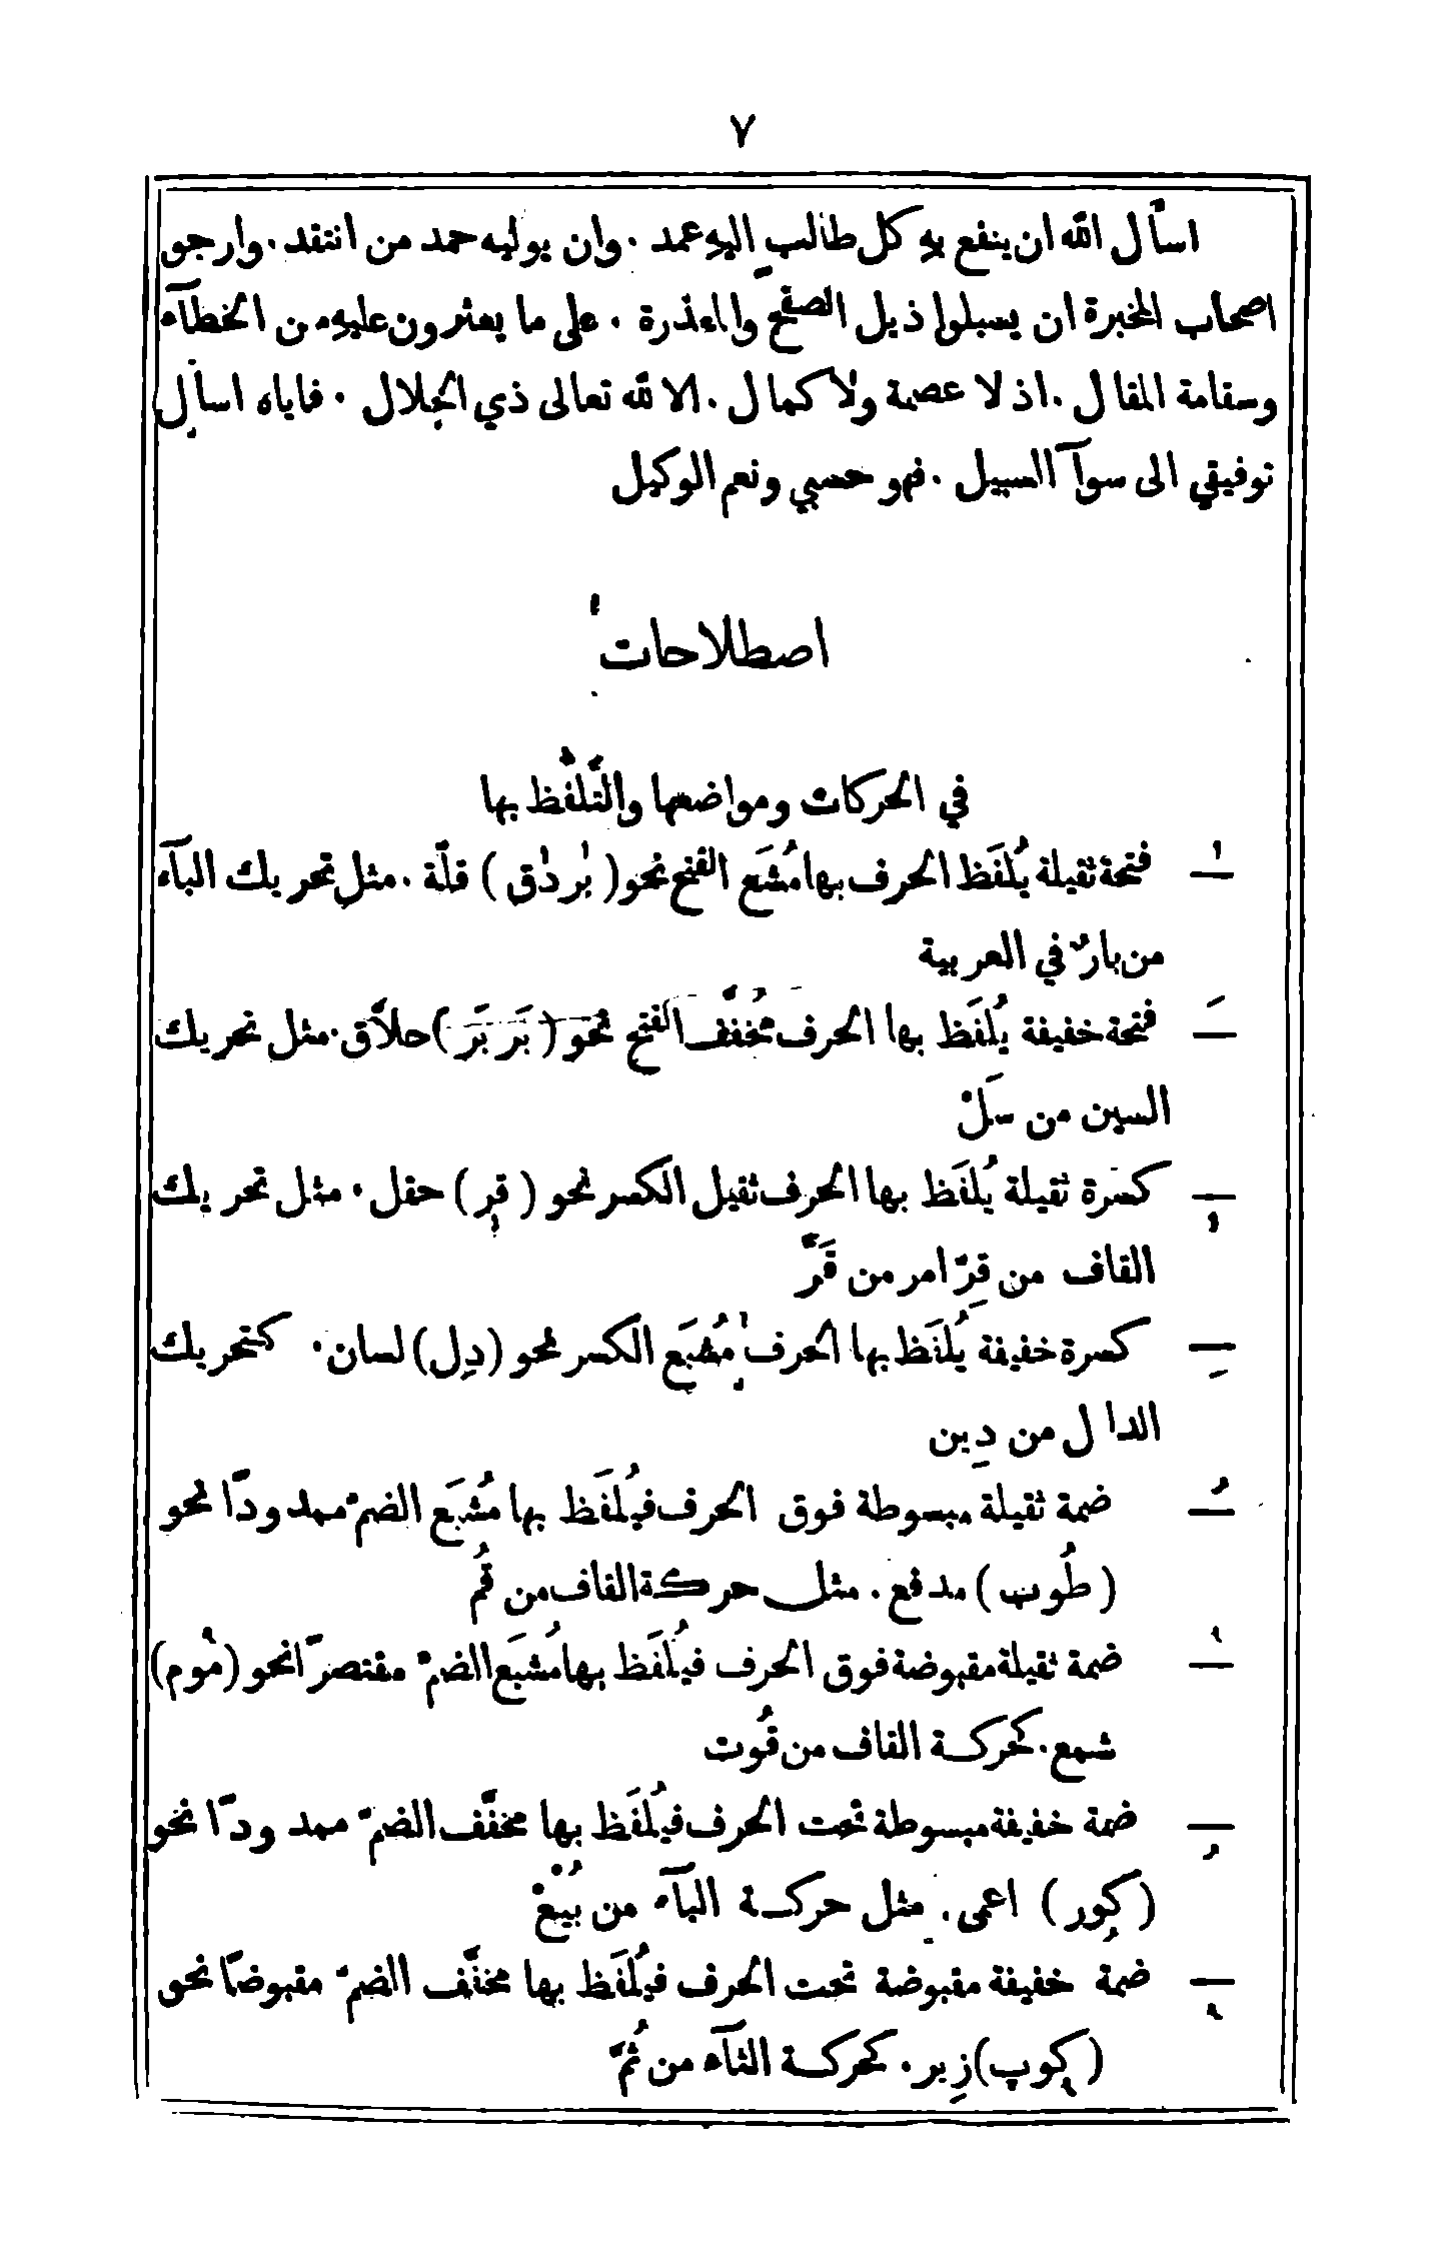 ٧
اسأل الله ان ينفع به كل طالب اليه عمد ٠ وان يوليه حمد من انتقد ٠ وارجو
اصحاب المخبرة ان يسبلوا ذيل الصفح والمعذرة ٠ على ما يعثرون عليه من الخطآء
وسقامة المقال ٠ اذ لا عصمة ولا كمال ٠ الا لله تعالى ذي الجلال ٠ فاياه اسأل
توفيقي الى سوآ السبيل ٠ فهو حسبي ونعم الوكيل
اصطلاحات
في الحركات ومواضعها والتَّلفُّظ بها
ـٰ فتحة ثقيلة يُلفَظ الحرف بها مُشبَع الفتح نحو ( بٰردٰق ) قلّة ٠ مثل تحريك البآء
من بارٌ في العربية
ـَ فتحة خفيفة يُلفَظ بها الحرف مُخفَّف الفتح نحو ( بَربَر ) حلاَّق ٠ مثل تحريك
السين من سَلْ
ـٖ كسرة ثقيلة يُلفَظ بها الحرف ثقيل الكسر نحو ( قٖر ) حقل ٠ مثل تحريك
القاف من قِرّ امر من قَرَّ
ـِ كسرة خفيفة يُلفَظ بها الحرف مُشبَع الكسر نحو ( دِل ) لسان ٠ كتحريك
الدال من دِين
ـُ ضمة ثقيلة مبسوطة فوق الحرف فيُلفَظ بها مُشبَع الضمّ ممدودًا نحو
( طُوب ) مدفع ٠ مثل حركة القاف من قُم
ـٗ ضمة ثقيلة مقبوضة فوق الحرف فيُلفَظ بها مُشبَع الضمّ مقتصرًا نحو ( مٗوم )
شمع ٠ كحركة القاف من قُوت
ـُ ضمة خفيفة مبسوطة تحت الحرف فيُلفَظ بها مخفَّف الضمّ ممدودًا نحو
( كور ) اعمى ٠ مثل حركة البآء من بُيْعْ
ـٖ ضمة خفيفة مقبوضة تحت الحرف فيُلفَظ بها مخفَّف الضمّ مقبوضًا نحو
( كوپ ) زِير ٠ كحركة الثآء من ثُمَّ